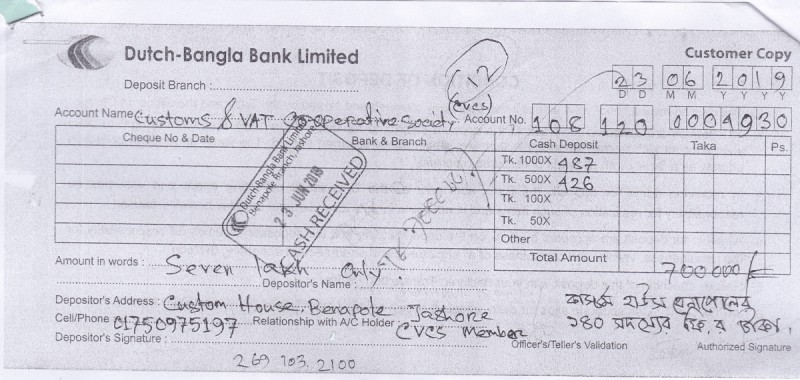 Dutch-Bangla Bank Limited
Customer Copy
Deposit Branch :
23 06 2019
D D M M Y Y Y Y
Account Name: Customs & VAT Co-operative Society (CVCS) Account No. 108 120 0004930
Cheque No & Date Bank & Branch Cash Deposit Taka Ps.
Tk. 1000X 487
Tk. 500X 426
Tk. 100X
Tk. 50X
Other
Total Amount 700000/-
Dutch-Bangla Bank Limited
Benapole Branch, Jashore
23 JUN 2019
CASH RECEIVED
Amount in words : Seven lakh Only.
Depositor's Name :
Depositor's Address : Custom House, Benapole Jashore
Cell/Phone 01750975197 Relationship with A/C Holder CVCS Member
Depositor's Signature :
কাস্টম হাউস বেনাপোলের
১৪০ সদস্যের
Officer's/Teller's Validation Authorized Signature
269 103. 2100